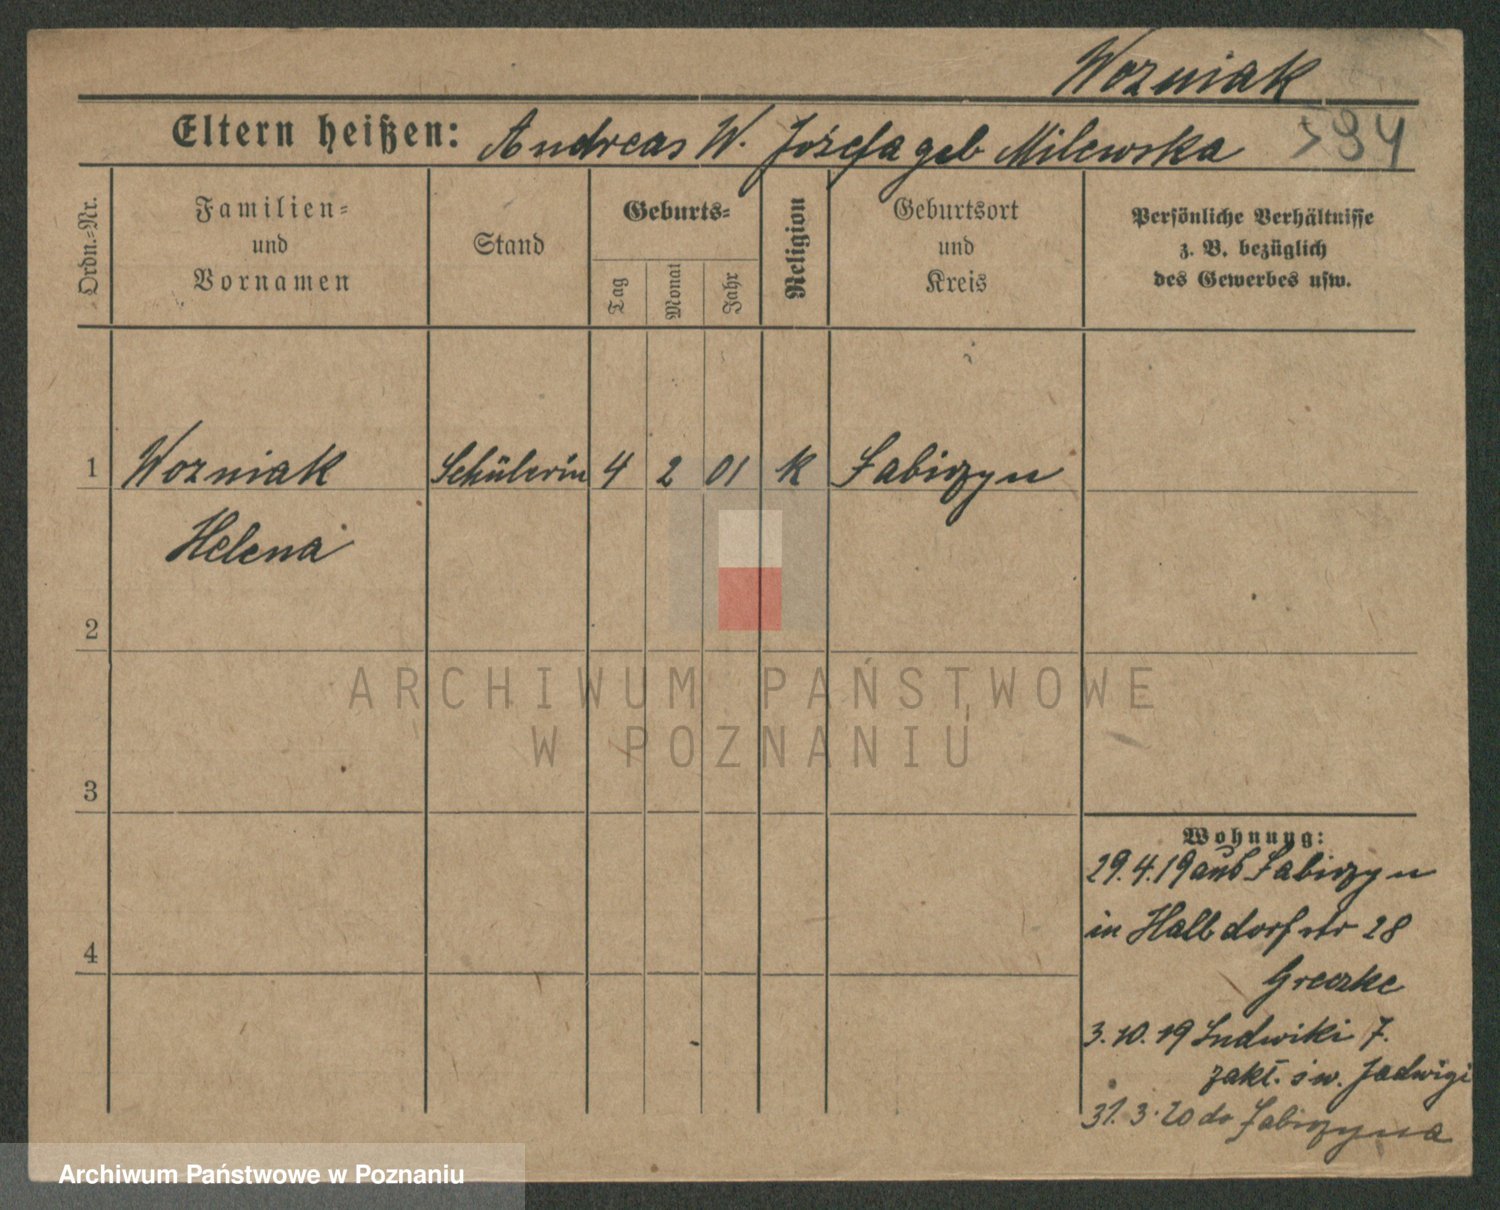 Wozniak
Eltern heißen: Andreas W. Józefa geb Milewska
Ordn.=Nr.
Familien=
und
Vornamen
Stand
Geburts=
Tag
Monat
Jahr
Religion
Geburtsort
und
Kreis
Persönliche Verhältnisse
z. B. bezüglich
des Gewerbes usw.
1 Wozniak Schülerin 4 2 01 K Fabiozyn
Helena
2
3
4
Wohnung:
29.4.19 aus Fabiozyn
in Halbdorfstr 28
Greczke
3.10.19 Ludwiki 7.
zakł. św. Jadwigi
31.3.20 do
ARCHIWUM PAŃSTWOWE
W POZNANIU
Archiwum Państwowe w Poznaniu